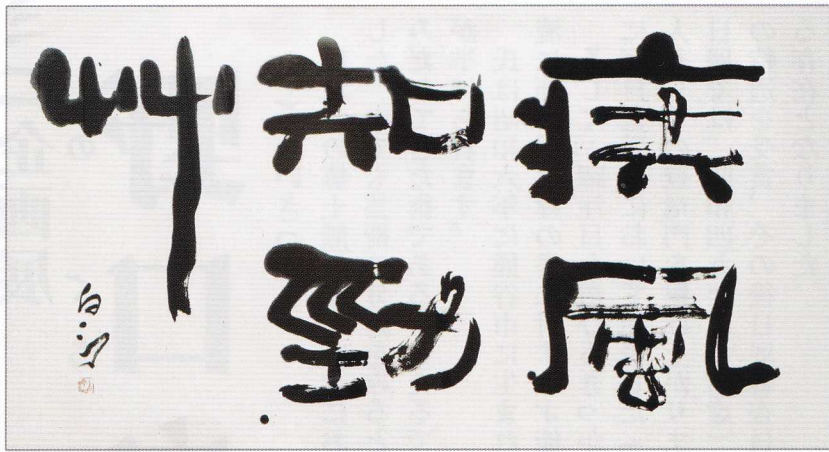 疾風
知勁
艸